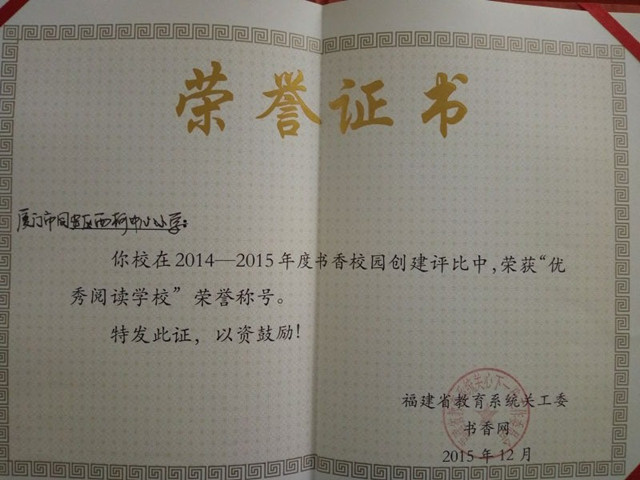 荣誉证书
厦门市同安区西柯中心小学:
你校在2014—2015年度书香校园创建评比中,荣获“优
秀阅读学校”荣誉称号。
特发此证，以资鼓励!
福建省教育系统关工委
书香网
2015年12月